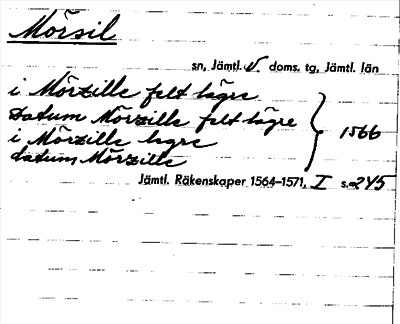 Mörsil
sn, Jämtl. v. doms. tg, Jämtl. län
i Mörzille felt lägre
Datum Mörzille felt lägre
i Mörzille lägre
datum Mörzille
1566
Jämtl. Räkenskaper 1564–1571, I s. 245